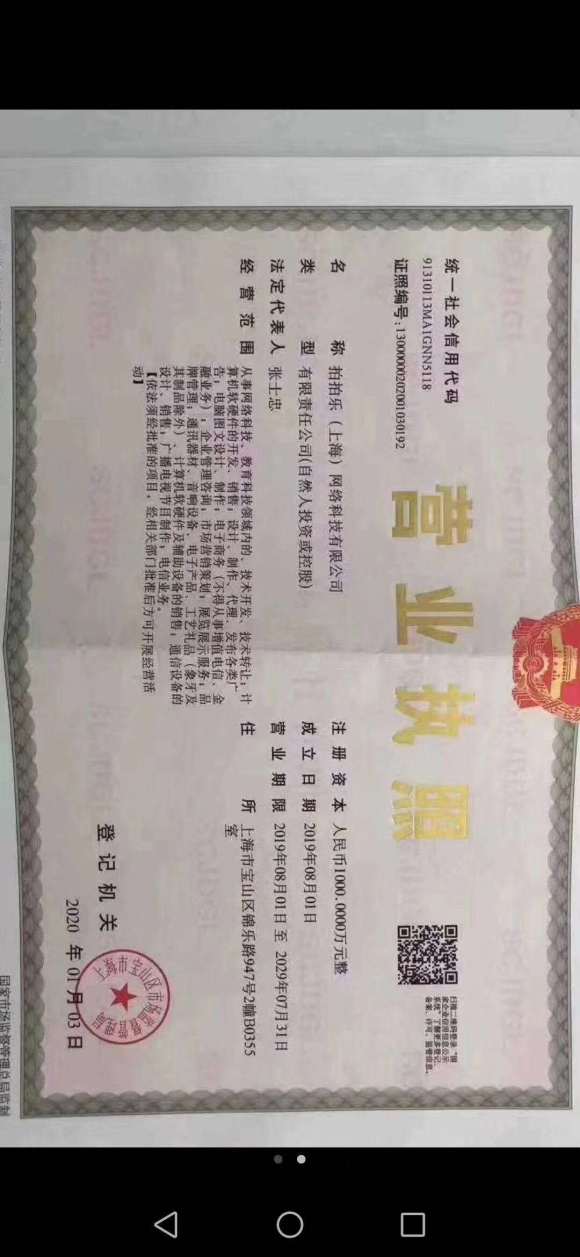 营业执照
统一社会信用代码
91310113MA1GNN5118
证照编号:13000000202001030192
扫描二维码登录“国
家企业信用信息公示
系统”了解更多登记、
备案、许可、监管信息。
名称 拍拍乐(上海)网络科技有限公司
类型 有限责任公司(自然人投资或控股)
法定代表人 张士忠
经营范围 从事网络科技、教育科技领域内的、技术开发、技术转让;计
算机软硬件的开发、销售;设计、制作、代理、发布各类广
告;电脑图文设计、制作;电子商务(不得从事增值电信、金
融业务);企业管理咨询;市场营销策划;展览展示服务;品
牌管理;通讯器材、音响设备、电子产品、工艺礼品(象牙及
其制品除外)、计算机软硬件及辅助设备的销售;通信设备的
设计、销售;广播电视节目制作;电信业务。
【依法须经批准的项目,经相关部门批准后方可开展经营活
动】
注册资本 人民币1000.0000万元整
成立日期 2019年08月01日
营业期限 2019年08月01日 至 2029年07月31日
住所 上海市宝山区锦乐路947号2幢B0355
室
登记机关
上海市宝山区市场监督管理局
2020 年 01 月 03 日
国家市场监督管理总局监制